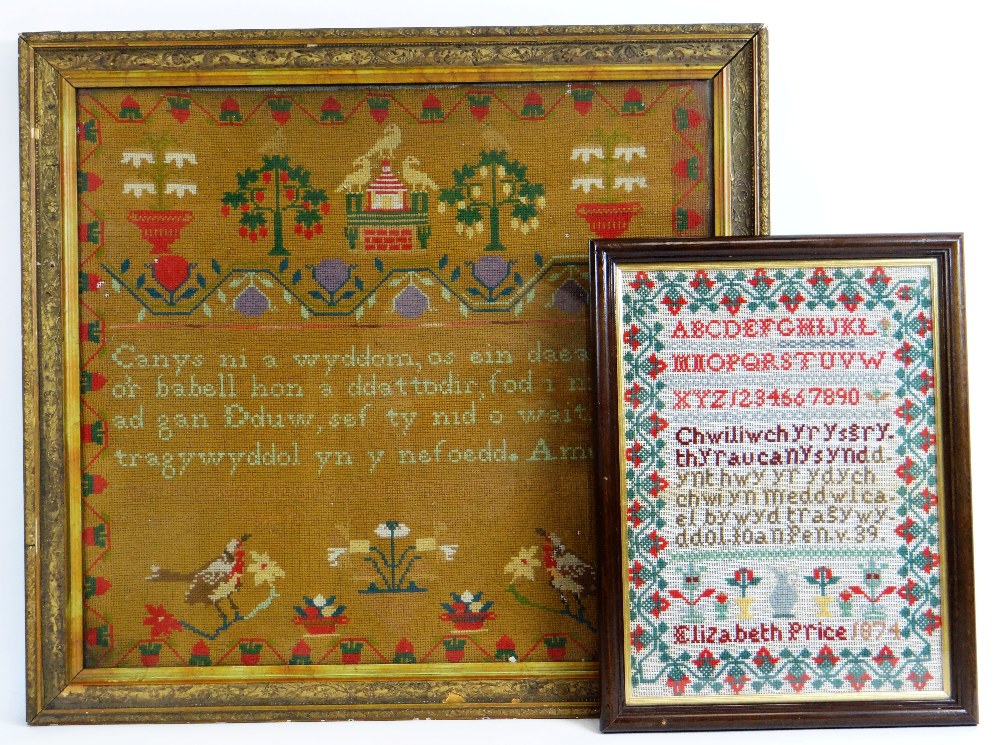 Canys ni a wyddom, os ein
o'r babell hon a ddattodir, fod i
ad gan Dduw, sef ty nid o
tragywyddol yn y nefoedd.
ABCDEFGHIJKL
MNOPQRSTUVW
XYZ1234667890
Chwiliwchyrysgry-
thyraucanysyndd-
ynt hwy yr ydych
chwi yn meddwl ca-
el bywyd tragywy-
ddol. Ioan Pen. v. 39.
Elizabeth Price 1874